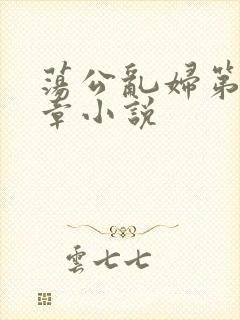 蕩公亂婦第
章小說
雲七七